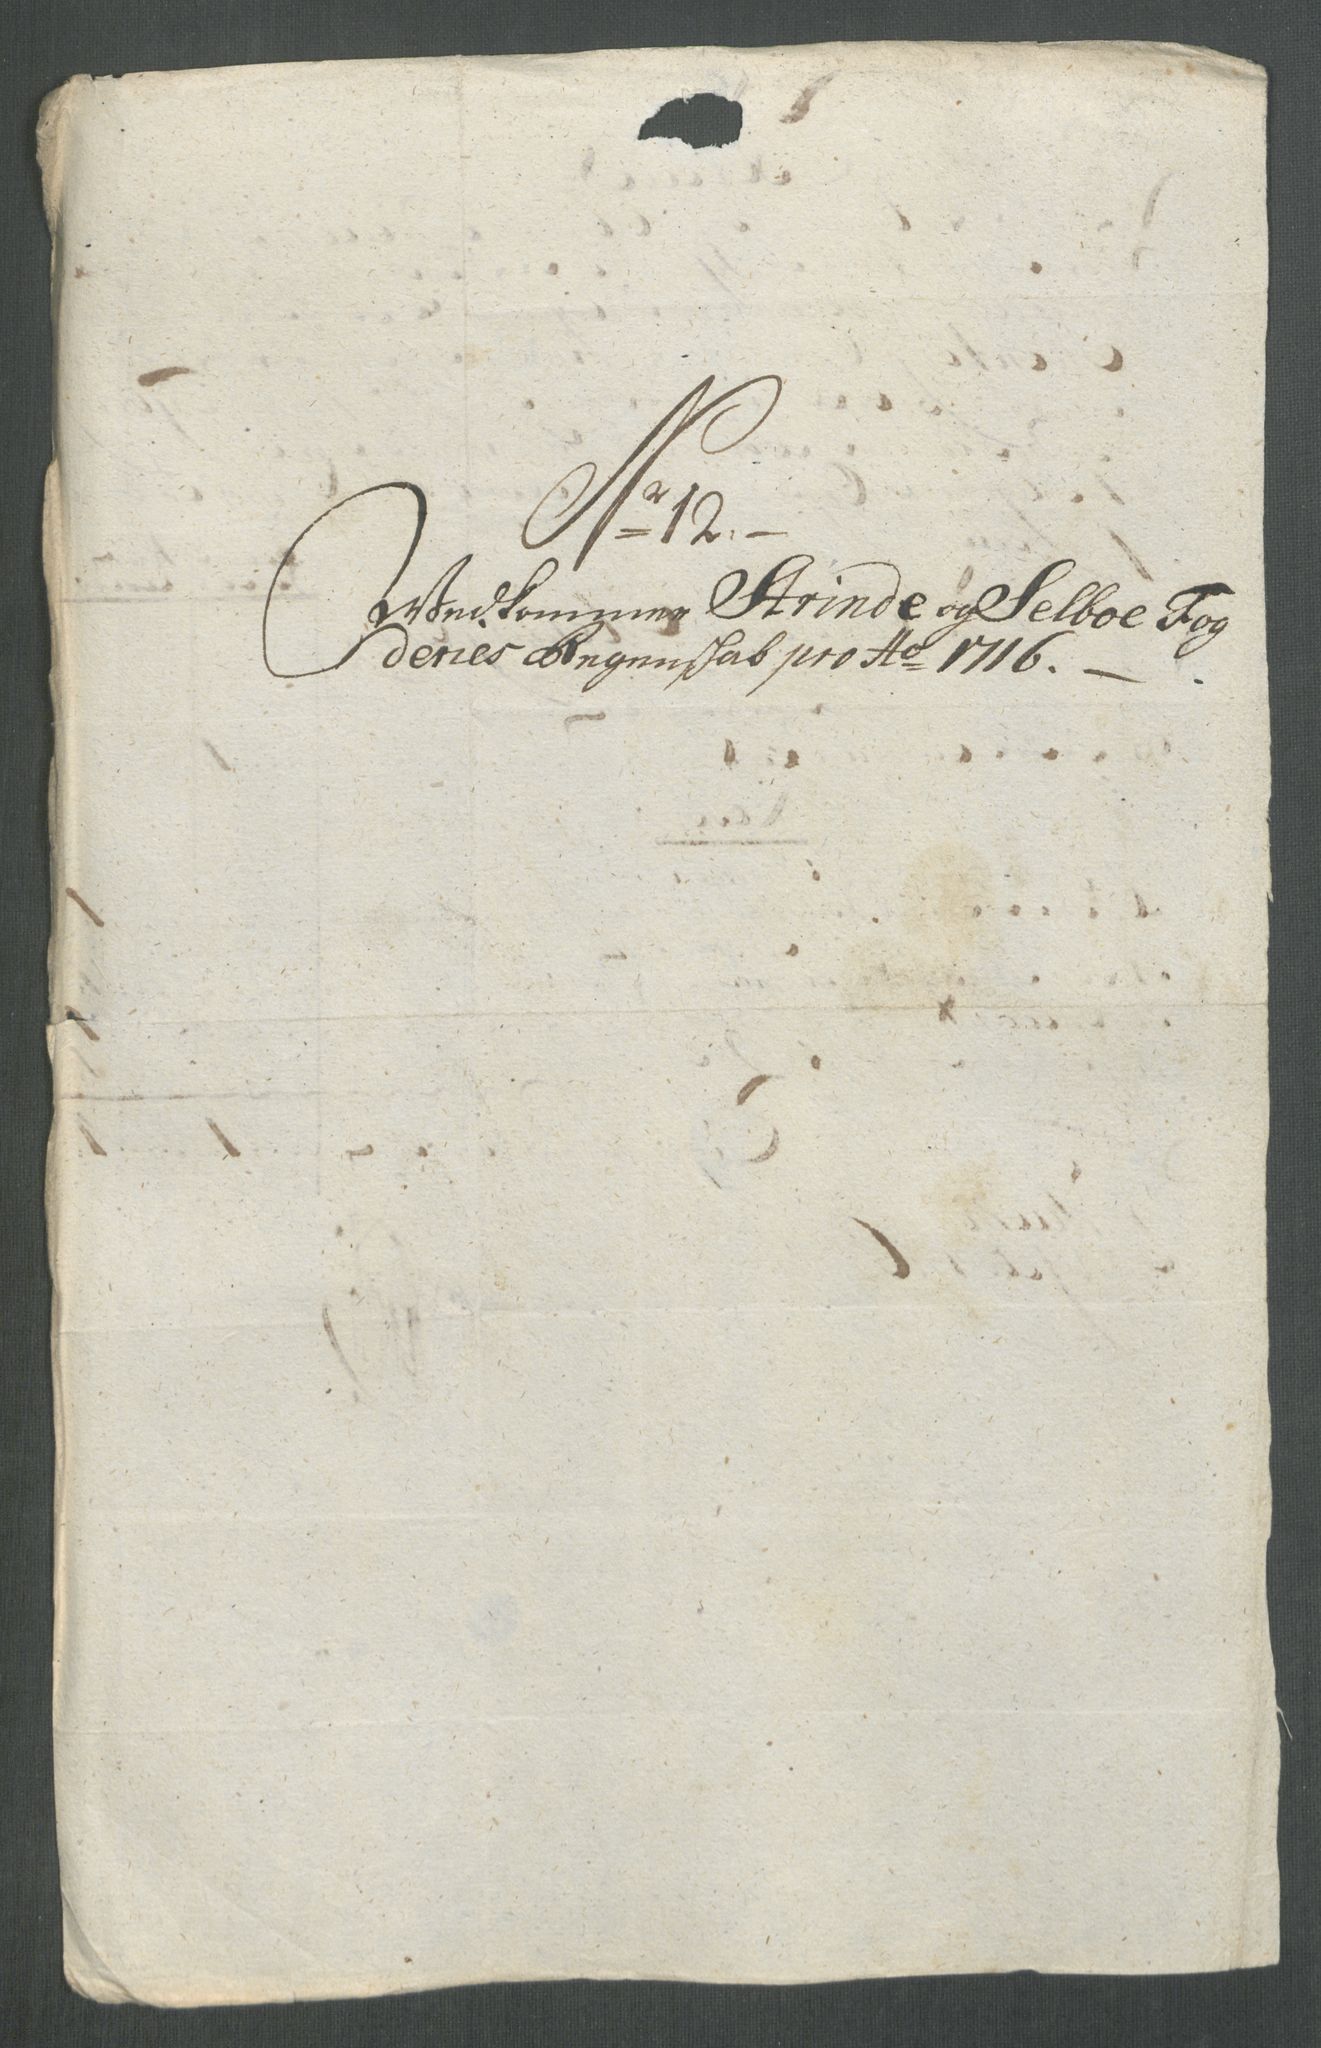 Nr 12.
Vedkommer Strinde og Selboe Fog
deries Regenskab pro Ao 1716.